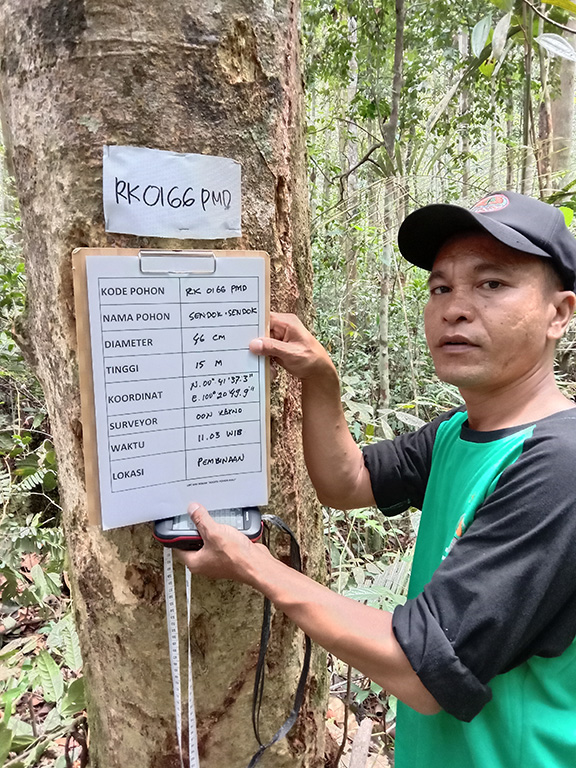 RK0166 PMD
KODE POHON RK 0166 PMD
NAMA POHON SENDOK-SENDOK
DIAMETER 46 CM
TINGGI 15 M
KOORDINAT N. 00° 41' 37.3"
E. 100° 20' 49.9"
SURVEYOR OON KARNO
WAKTU 11.03 WIB
LOKASI PEMBINAAN